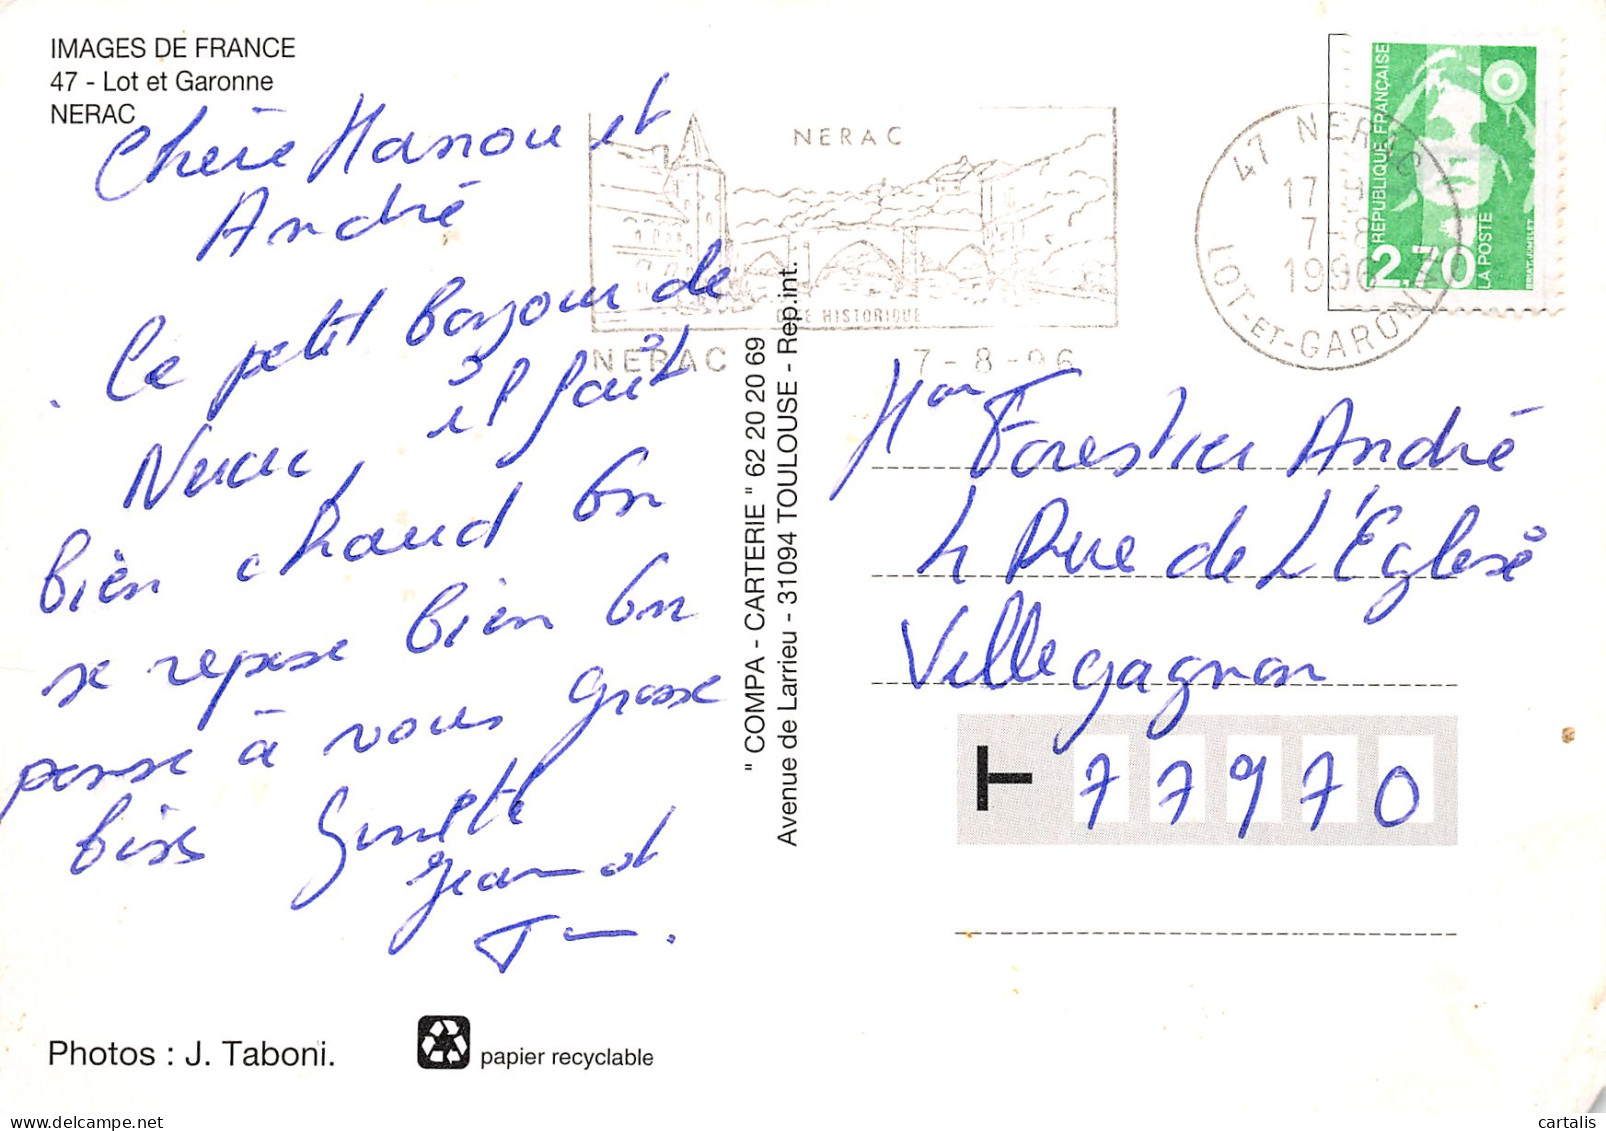 IMAGES DE FRANCE
47 - Lot et Garonne
NERAC
Chère Manou et
André
Ce petit bonjour de
Nerac, il fait
bien chaud on
se repose bien on
pense à vous grosse
bises Ginette
Jean et
NERAC
CITE HISTORIQUE
NERAC 7-8-96
47 NERAC
17 H
7-8
1996
LOT-ET-GARONNE
REPUBLIQUE FRANÇAISE
2,70
LA POSTE
BRIAT-JUMELET
" COMPA - CARTERIE " 62 20 20 69
Avenue de Larrieu - 31094 TOULOUSE - Rep.int.
Mon Forestier André
4 Rue de L'Eglise
Villegagnon
T 77970
Photos : J. Taboni.
papier recyclable
cartalis